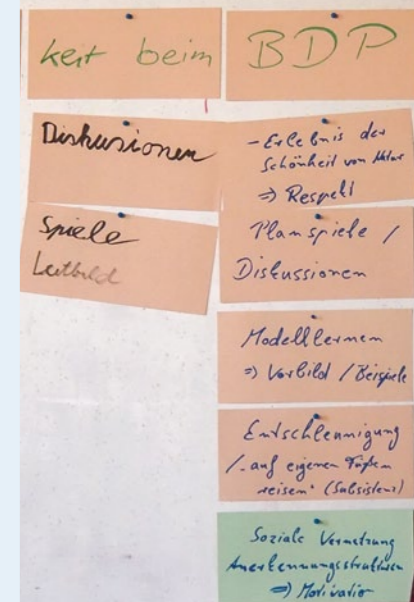 keit beim BDP
Diskusionen
Spiele
Leitbild
- Erlebnis der
Schönheit von Natur
=> Respekt
Planspiele /
Diskussionen
Modelllernen
=> Vorbild / Beispiele
Entschleunigung
/ „auf eigenen Füßen
reisen“ (Subsistenz)
Soziale Vernetzung
Anerkennungsstrukturen
=> Motivation